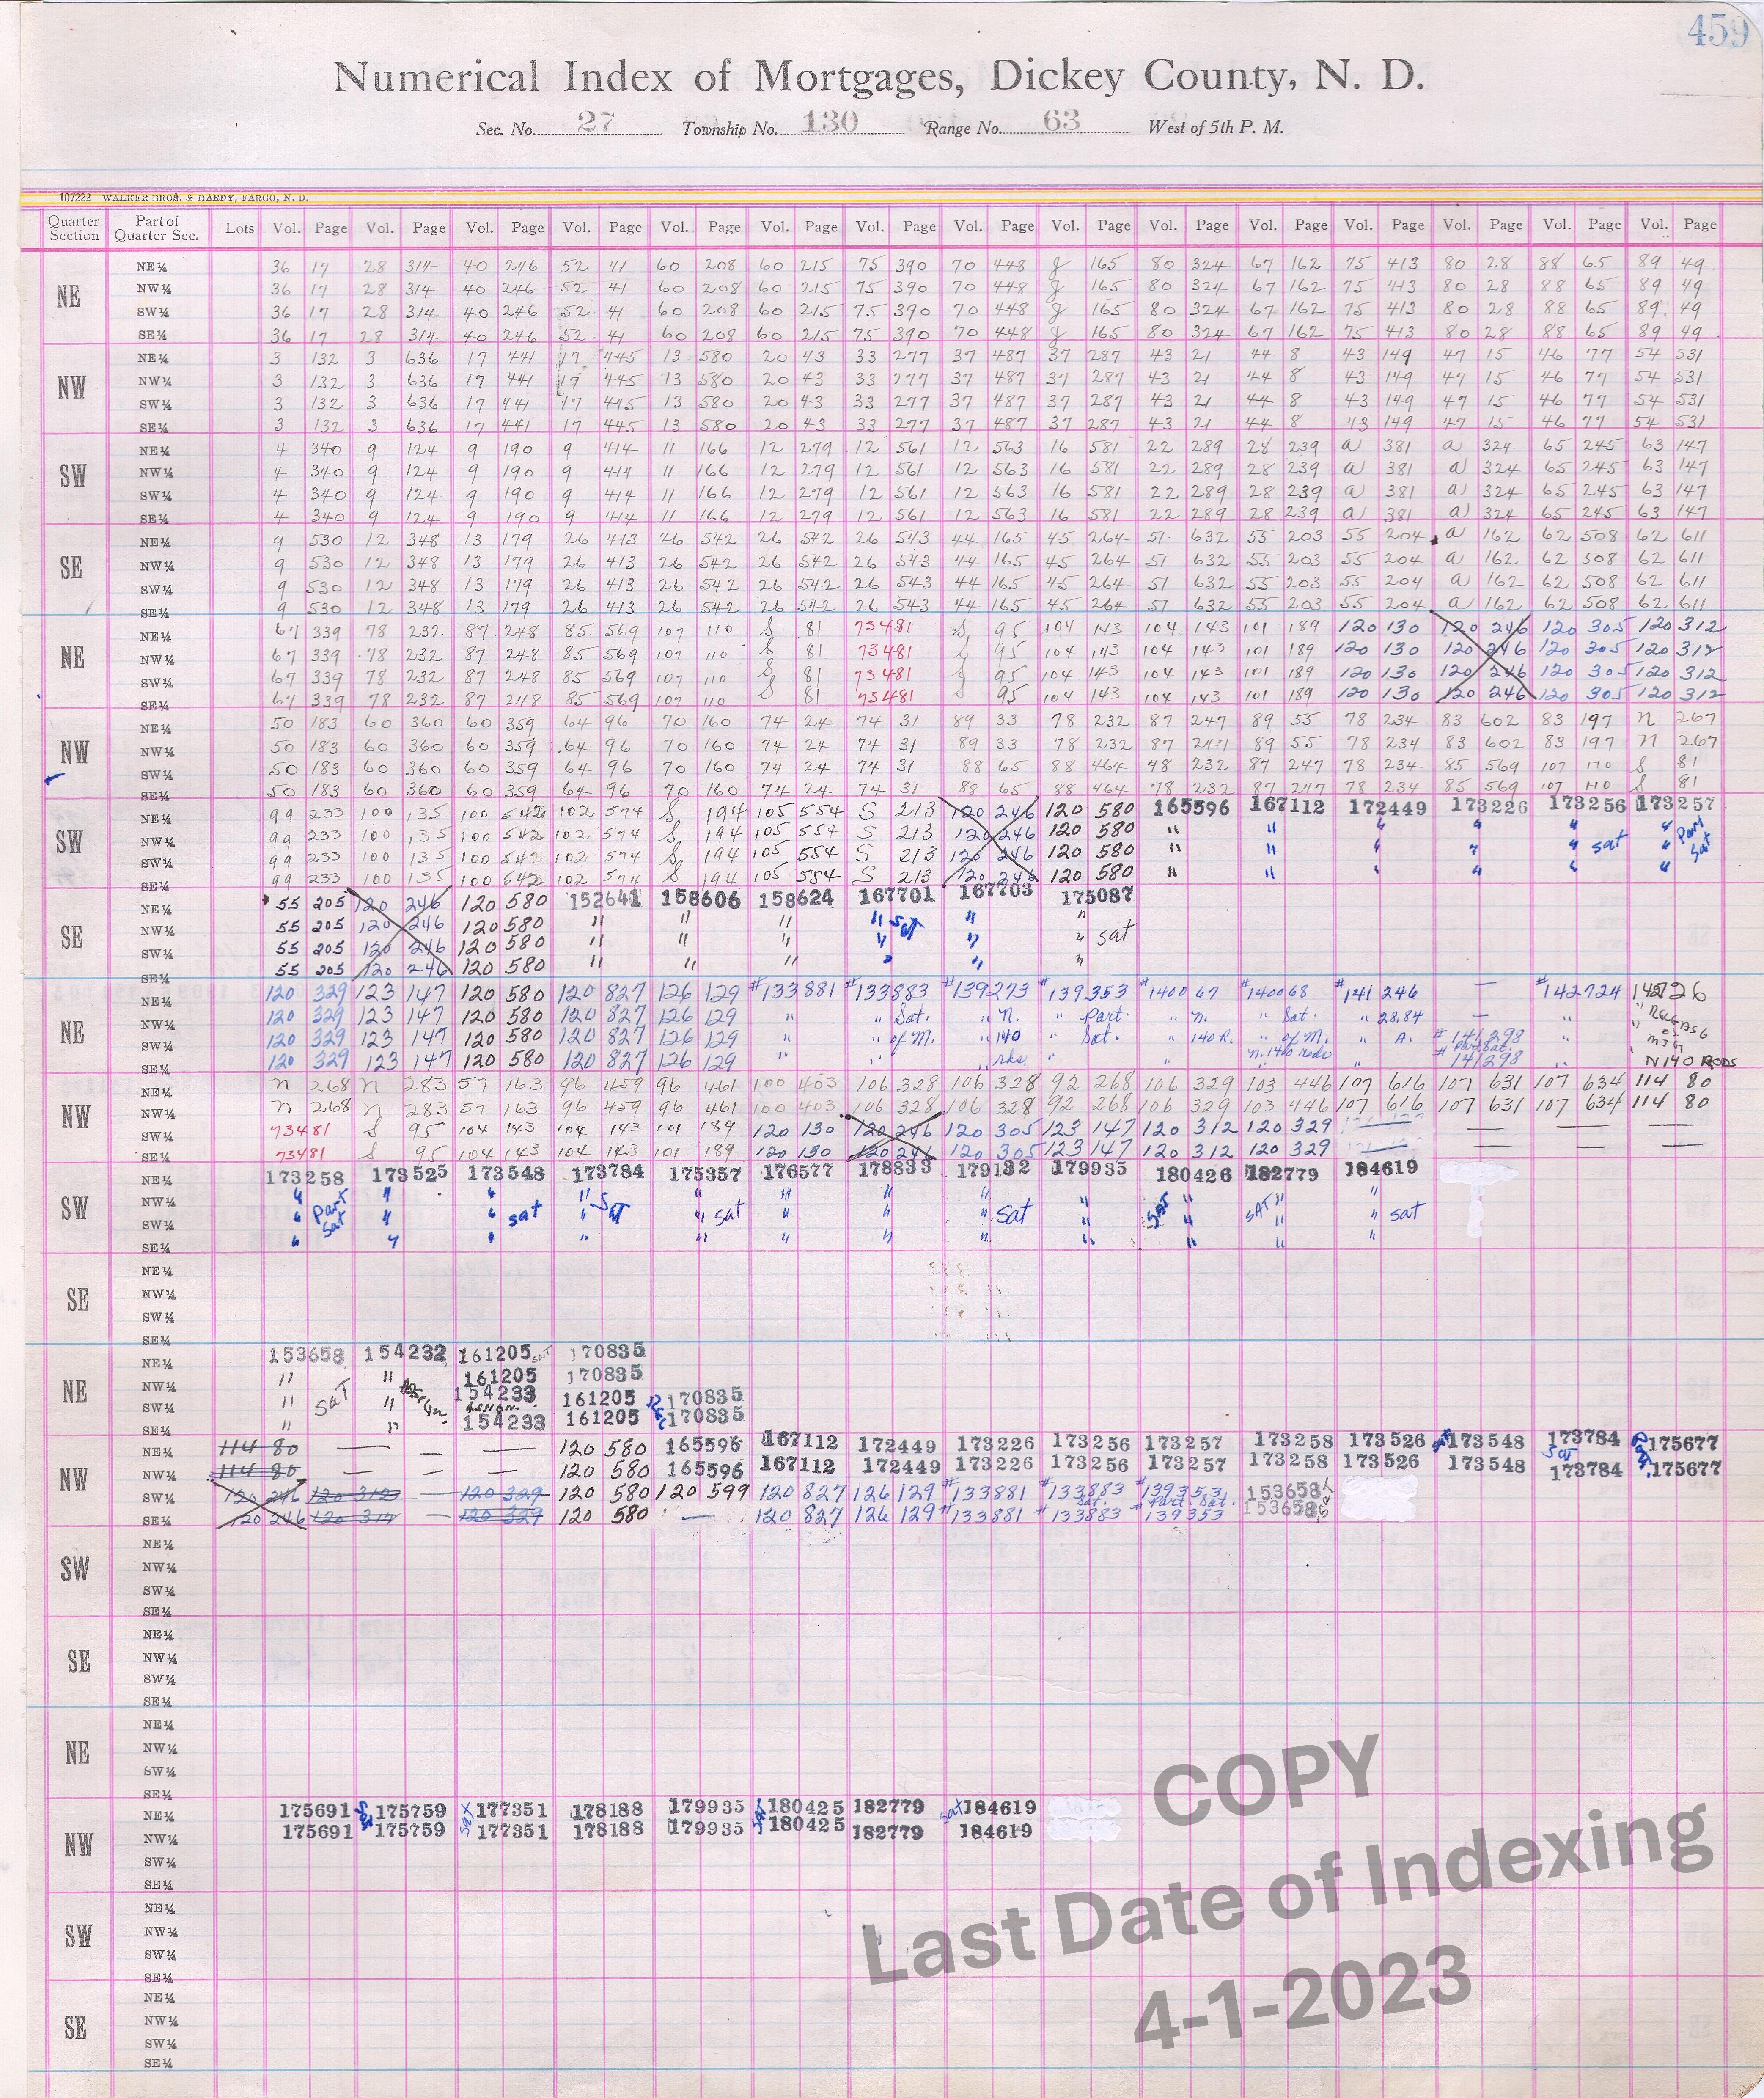 459
Numerical Index of Mortgages, Dickey County, N. D.
Sec. No. 27 Township No. 130 Range No. 63 West of 5th P. M.
107222 WALKER BROS. & HARDY, FARGO, N. D.
Quarter Section Part of Quarter Sec. Lots Vol. Page Vol. Page Vol. Page Vol. Page Vol. Page Vol. Page Vol. Page Vol. Page Vol. Page Vol. Page Vol. Page Vol. Page Vol. Page Vol. Page Vol. Page
NE
NE¼ 36 17 28 314 40 246 52 41 60 208 60 215 75 390 70 448 g 165 80 324 67 162 75 413 80 28 88 65 89 49
NW¼ 36 17 28 314 40 246 52 41 60 208 60 215 75 390 70 448 g 165 80 324 67 162 75 413 80 28 88 65 89 49
SW¼ 36 17 28 314 40 246 52 41 60 208 60 215 75 390 70 448 g 165 80 324 67 162 75 413 80 28 88 65 89 49
SE¼ 36 17 28 314 40 246 52 41 60 208 60 215 75 390 70 448 g 165 80 324 67 162 75 413 80 28 88 65 89 49
NW
NE¼ 3 132 3 636 17 441 17 445 13 580 20 43 33 277 37 487 37 287 43 21 44 8 43 149 47 15 46 77 54 531
NW¼ 3 132 3 636 17 441 17 445 13 580 20 43 33 277 37 487 37 287 43 21 44 8 43 149 47 15 46 77 54 531
SW¼ 3 132 3 636 17 441 17 445 13 580 20 43 33 277 37 487 37 287 43 21 44 8 43 149 47 15 46 77 54 531
SE¼ 3 132 3 636 17 441 17 445 13 580 20 43 33 277 37 487 37 287 43 21 44 8 43 149 47 15 46 77 54 531
SW
NE¼ 4 340 9 124 9 190 9 414 11 166 12 279 12 561 12 563 16 581 22 289 28 239 a 381 a 324 65 245 63 147
NW¼ 4 340 9 124 9 190 9 414 11 166 12 279 12 561 12 563 16 581 22 289 28 239 a 381 a 324 65 245 63 147
SW¼ 4 340 9 124 9 190 9 414 11 166 12 279 12 561 12 563 16 581 22 289 28 239 a 381 a 324 65 245 63 147
SE¼ 4 340 9 124 9 190 9 414 11 166 12 279 12 561 12 563 16 581 22 289 28 239 a 381 a 324 65 245 63 147
SE
NE¼ 9 530 12 348 13 179 26 413 26 542 26 542 26 543 44 165 45 264 51 632 55 203 55 204 a 162 62 508 62 611
NW¼ 9 530 12 348 13 179 26 413 26 542 26 542 26 543 44 165 45 264 51 632 55 203 55 204 a 162 62 508 62 611
SW¼ 9 530 12 348 13 179 26 413 26 542 26 542 26 543 44 165 45 264 51 632 55 203 55 204 a 162 62 508 62 611
SE¼ 9 530 12 348 13 179 26 413 26 542 26 542 26 543 44 165 45 264 51 632 55 203 55 204 a 162 62 508 62 611
NE
NE¼ 67 339 78 232 87 248 85 569 107 110 S 81 73481 S 95 104 143 104 143 101 189 120 130 120 246 120 305 120 312
NW¼ 67 339 78 232 87 248 85 569 107 110 S 81 73481 S 95 104 143 104 143 101 189 120 130 120 246 120 305 120 312
SW¼ 67 339 78 232 87 248 85 569 107 110 S 81 73481 S 95 104 143 104 143 101 189 120 130 120 246 120 305 120 312
SE¼ 67 339 78 232 87 248 85 569 107 110 S 81 73481 S 95 104 143 104 143 101 189 120 130 120 246 120 305 120 312
NW
NE¼ 50 183 60 360 60 359 64 96 70 160 74 24 74 31 89 33 78 232 87 247 89 55 78 234 83 602 83 197 n 267
NW¼ 50 183 60 360 60 359 64 96 70 160 74 24 74 31 89 33 78 232 87 247 89 55 78 234 83 602 83 197 n 267
SW¼ 50 183 60 360 60 359 64 96 70 160 74 24 74 31 88 65 88 464 78 232 87 247 78 234 85 569 107 110 S 81
SE¼ 50 183 60 360 60 359 64 96 70 160 74 24 74 31 88 65 88 464 78 232 87 247 78 234 85 569 107 110 S 81
SW
NE¼ 99 233 100 135 100 542 102 574 S 194 105 554 S 213 120 246 120 580 165596 167112 172449 173226 173256 173257
NW¼ 99 233 100 135 100 542 102 574 S 194 105 554 S 213 120 246 120 580 " " " " " sat " Part Sat
SW¼ 99 233 100 135 100 542 102 574 S 194 105 554 S 213 120 246 120 580 " " " " " "
SE¼ 99 233 100 135 100 642 102 574 S 194 105 554 S 213 120 246 120 580 " " " " " "
SE
NE¼ 55 205 120 246 120 580 152641 158606 158624 167701 167703 175087
NW¼ 55 205 120 246 120 580 " " " " sat " "
SW¼ 55 205 120 246 120 580 " " " " " " sat
SE¼ 55 205 120 246 120 580 " " " " " "
NE
NE¼ 120 329 123 147 120 580 120 827 126 129 #133881 #133883 #139273 #139353 #140067 #140068 #141246 — #142724 142726
NW¼ 120 329 123 147 120 580 120 827 126 129 " " Sat. " N. " Part. " N. " Sat. " 28.84 — " " RELEASE
SW¼ 120 329 123 147 120 580 120 827 126 129 " " of M. " 140 " Sat. " 140 R. " of M. " A. #141298 " " of MTG
SE¼ 120 329 123 147 120 580 120 827 126 129 " " " rks. " " " N. 140 rods " # Part. Sat. 141298 " N 140 RODS
NW
NE¼ n 268 n 283 57 163 96 459 96 461 100 403 106 328 106 328 92 268 106 329 103 446 107 616 107 631 107 634 114 80
NW¼ n 268 n 283 57 163 96 459 96 461 100 403 106 328 106 328 92 268 106 329 103 446 107 616 107 631 107 634 114 80
SW¼ 73481 S 95 104 143 104 143 101 189 120 130 120 246 120 305 123 147 120 312 120 329 — — —
SE¼ 73481 S 95 104 143 104 143 101 189 120 130 120 246 120 305 123 147 120 312 120 329 — — —
SW
NE¼ 173258 173525 173548 173784 175357 176577 178833 179132 179935 180426 182779 184619
NW¼ " Part Sat " " " Sat " " " " " " SAT " SAT " "
SW¼ " " " sat " " sat " " " sat " " " " sat
SE¼ " " " " " " " " " " " "
SE
NE¼
NW¼
SW¼
SE¼
NE
NE¼ 153658 154232 161205 sat 170835
NW¼ " " 161205 170835
SW¼ " Sat " Assign. 154233 161205 170835
SE¼ " " Assign. 154233 161205 170835
NW
NE¼ 114 80 — — — 120 580 165596 167112 172449 173226 173256 173257 173258 173526 173548 173784 175677
NW¼ 114 80 — — — 120 580 165596 167112 172449 173226 173256 173257 173258 173526 173548 Sat 173784 175677
SW¼ 120 246 120 312 — 120 329 120 580 120 599 120 827 126 129 #133881 #133883 #139353 153658
SE¼ 120 246 120 312 — 120 329 120 580 — 120 827 126 129 #133881 Sat. #133883 # Part. Sat. 139353 153658
SW
NE¼
NW¼
SW¼
SE¼
SE
NE¼
NW¼
SW¼
SE¼
NE
NE¼
NW¼
SW¼
SE¼
NW
NE¼ 175691 175759 177351 178188 179935 180425 182779 sat 184619
NW¼ 175691 sat 175759 sat 177351 178188 179935 sat 180425 182779 184619
SW¼
SE¼
SW
NE¼
NW¼
SW¼
SE¼
SE
NE¼
NW¼
SW¼
SE¼
COPY
Last Date of Indexing
4-1-2023